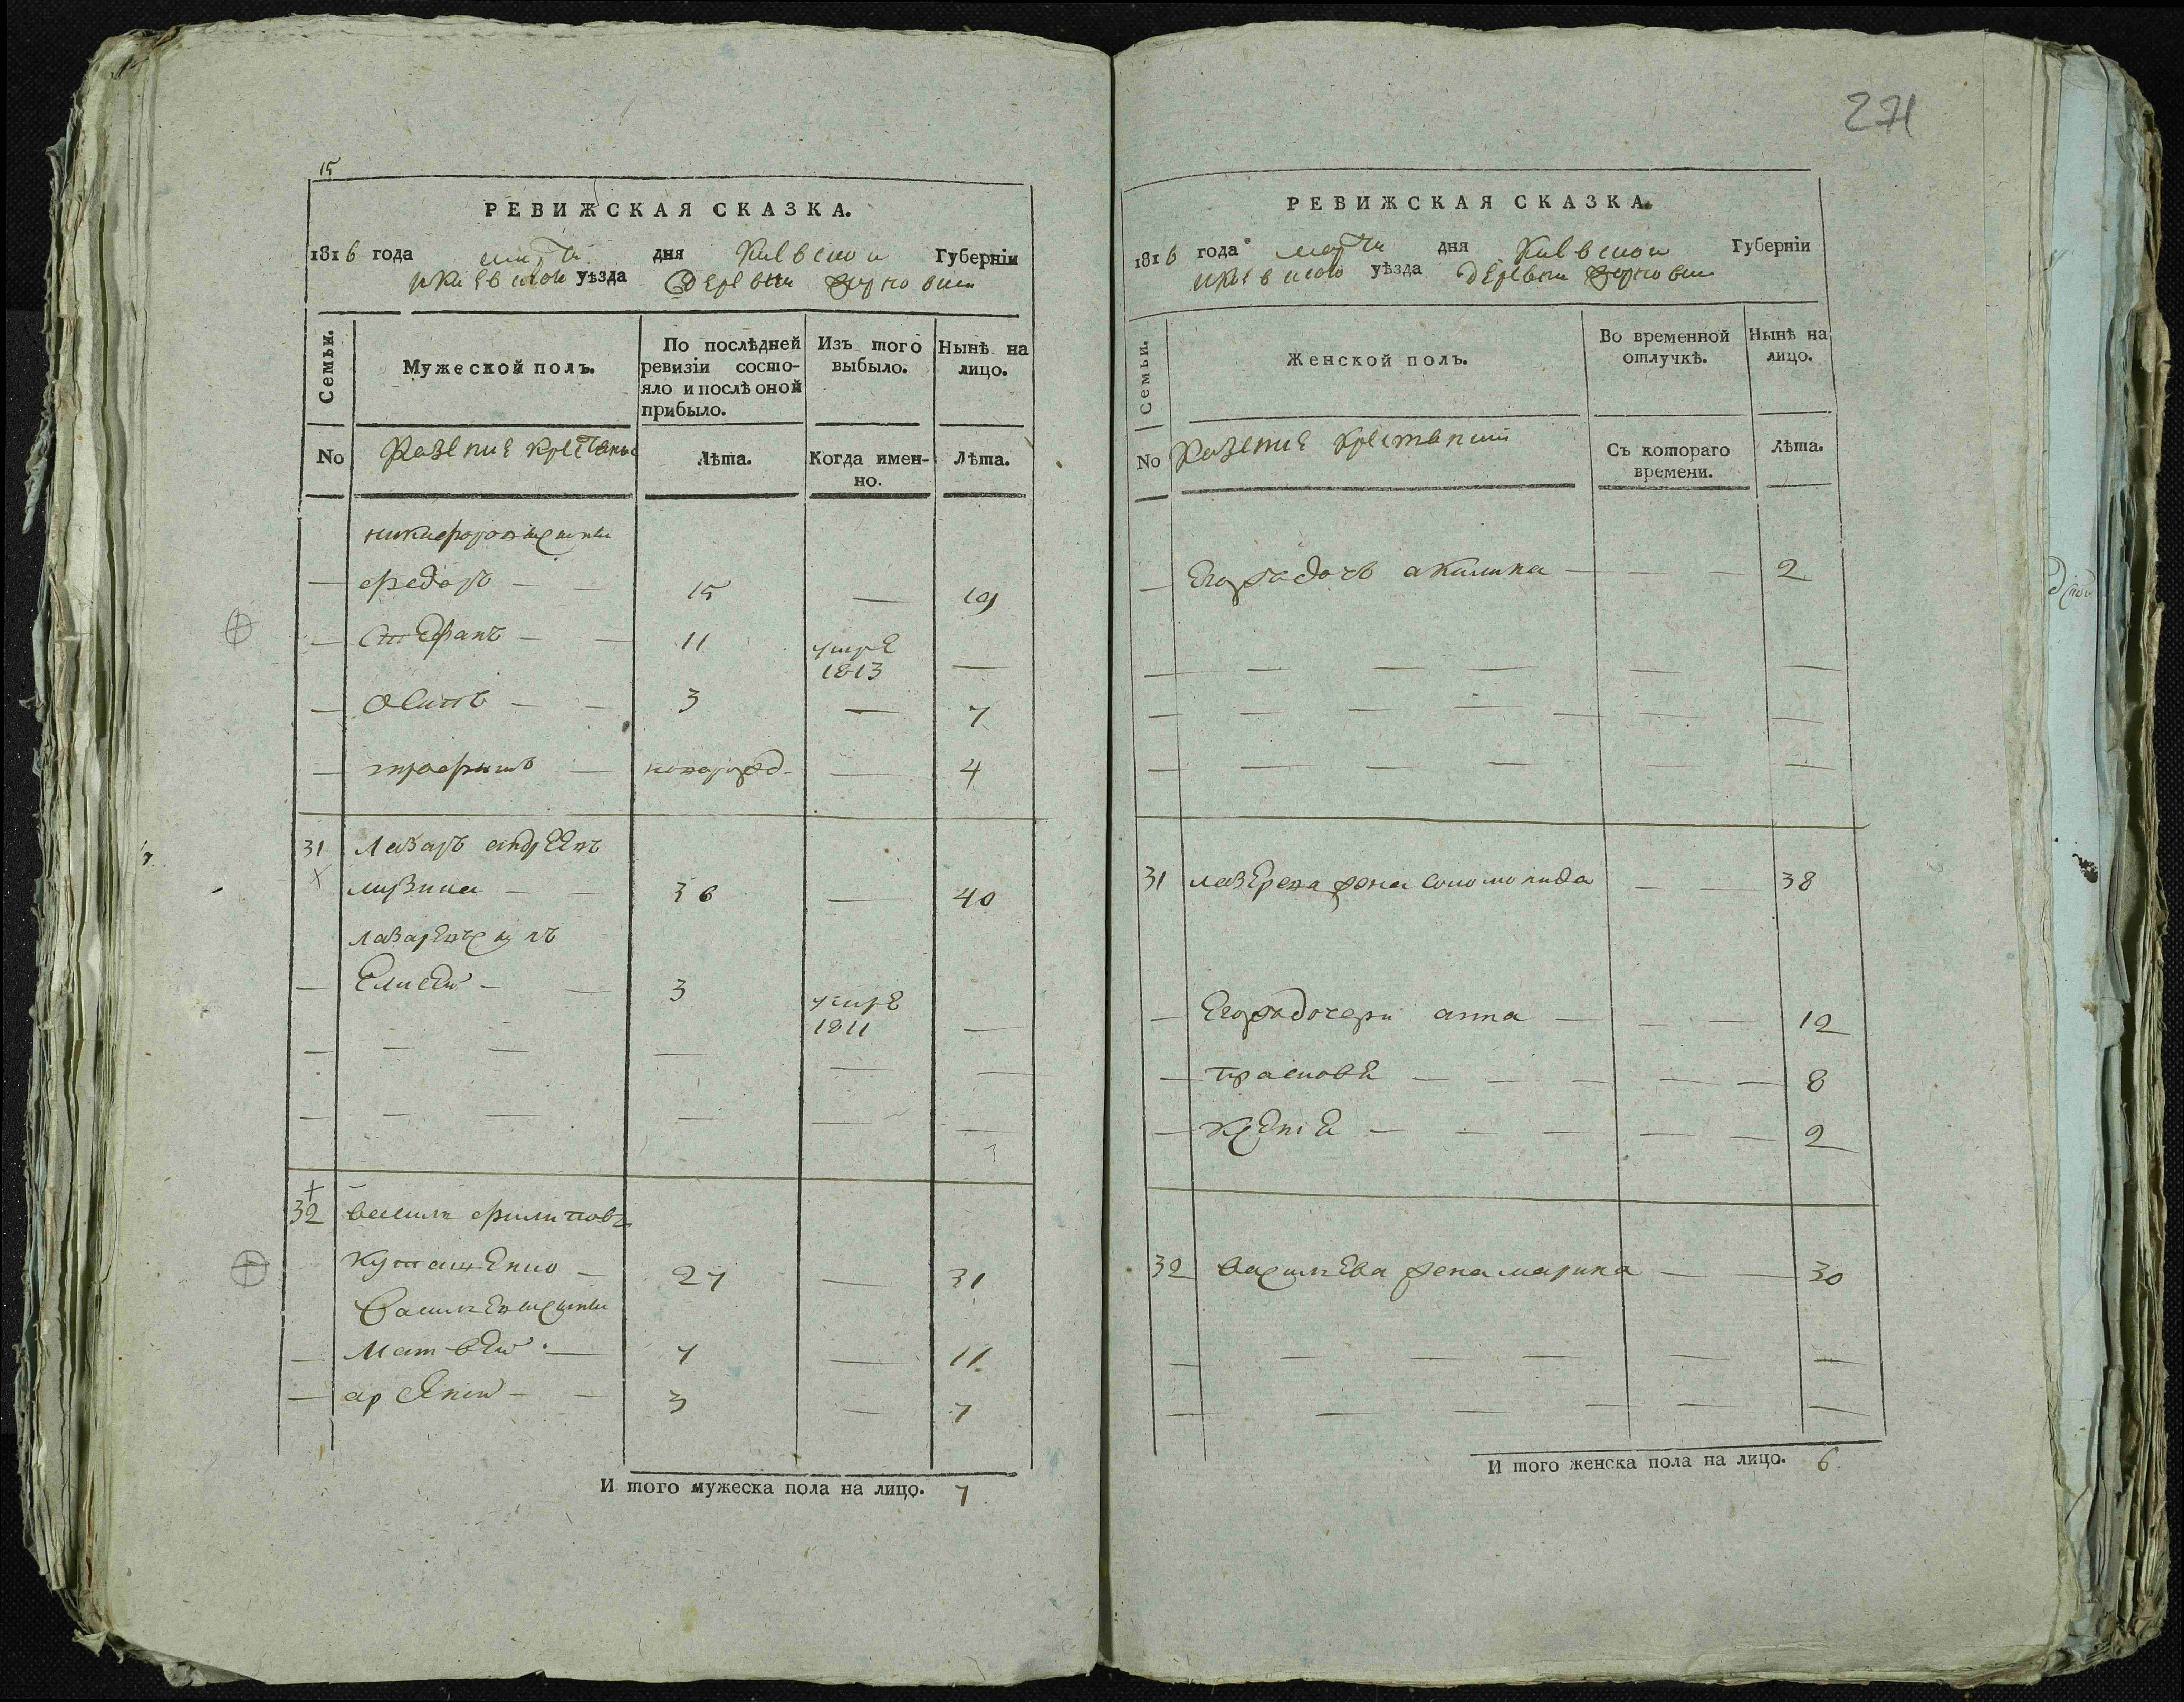 15
РЕВИЖСКАЯ СКАЗКА.
1816 года марта дня Киевской Губерніи
и Киевского уѣзда деревни
Семьи.
Мужеской полъ.
По послѣдней ревизіи состо-
яло и послѣ оной
прибыло.
Изъ того
выбыло.
Нынѣ на
лицо.
No
крестьяне
Лѣта.
Когда имен-
но.
Лѣта.
никифоровы сыны
— федоръ — — 15 — 19
— Стефанъ — — 11 умре
1813 —
— Осипъ — — 3 — 7
— трофимъ — новорожд. — 4
31 Лазаръ андреевъ
— — 36 — 40
Лазаревъ сынъ
— Елисей — — 3 умре
1811 —
32 василий филиповъ
— 27 — 31
Василиевы сыны
— Матвей — 7 — 11
— арсений — — 3 — 7
И того мужеска пола на лицо. 7
271
РЕВИЖСКАЯ СКАЗКА.
1816 года марта дня Киевской Губерніи
и Киевского уѣзда деревни
Семьи.
Женской полъ.
Во временной
отлучкѣ.
Нынѣ на
лицо.
No
крестьяне
Съ котораго
времени.
Лѣта.
— Егожъ дочь акилина — — — 2
31 лазерева жена соломонида — — 38
— Егожъ дочери анна — — — 12
— прасковея — — — — — 8
— ксения — — — — — 2
32 василиева жена марина — — 30
И того женска пола на лицо. 6